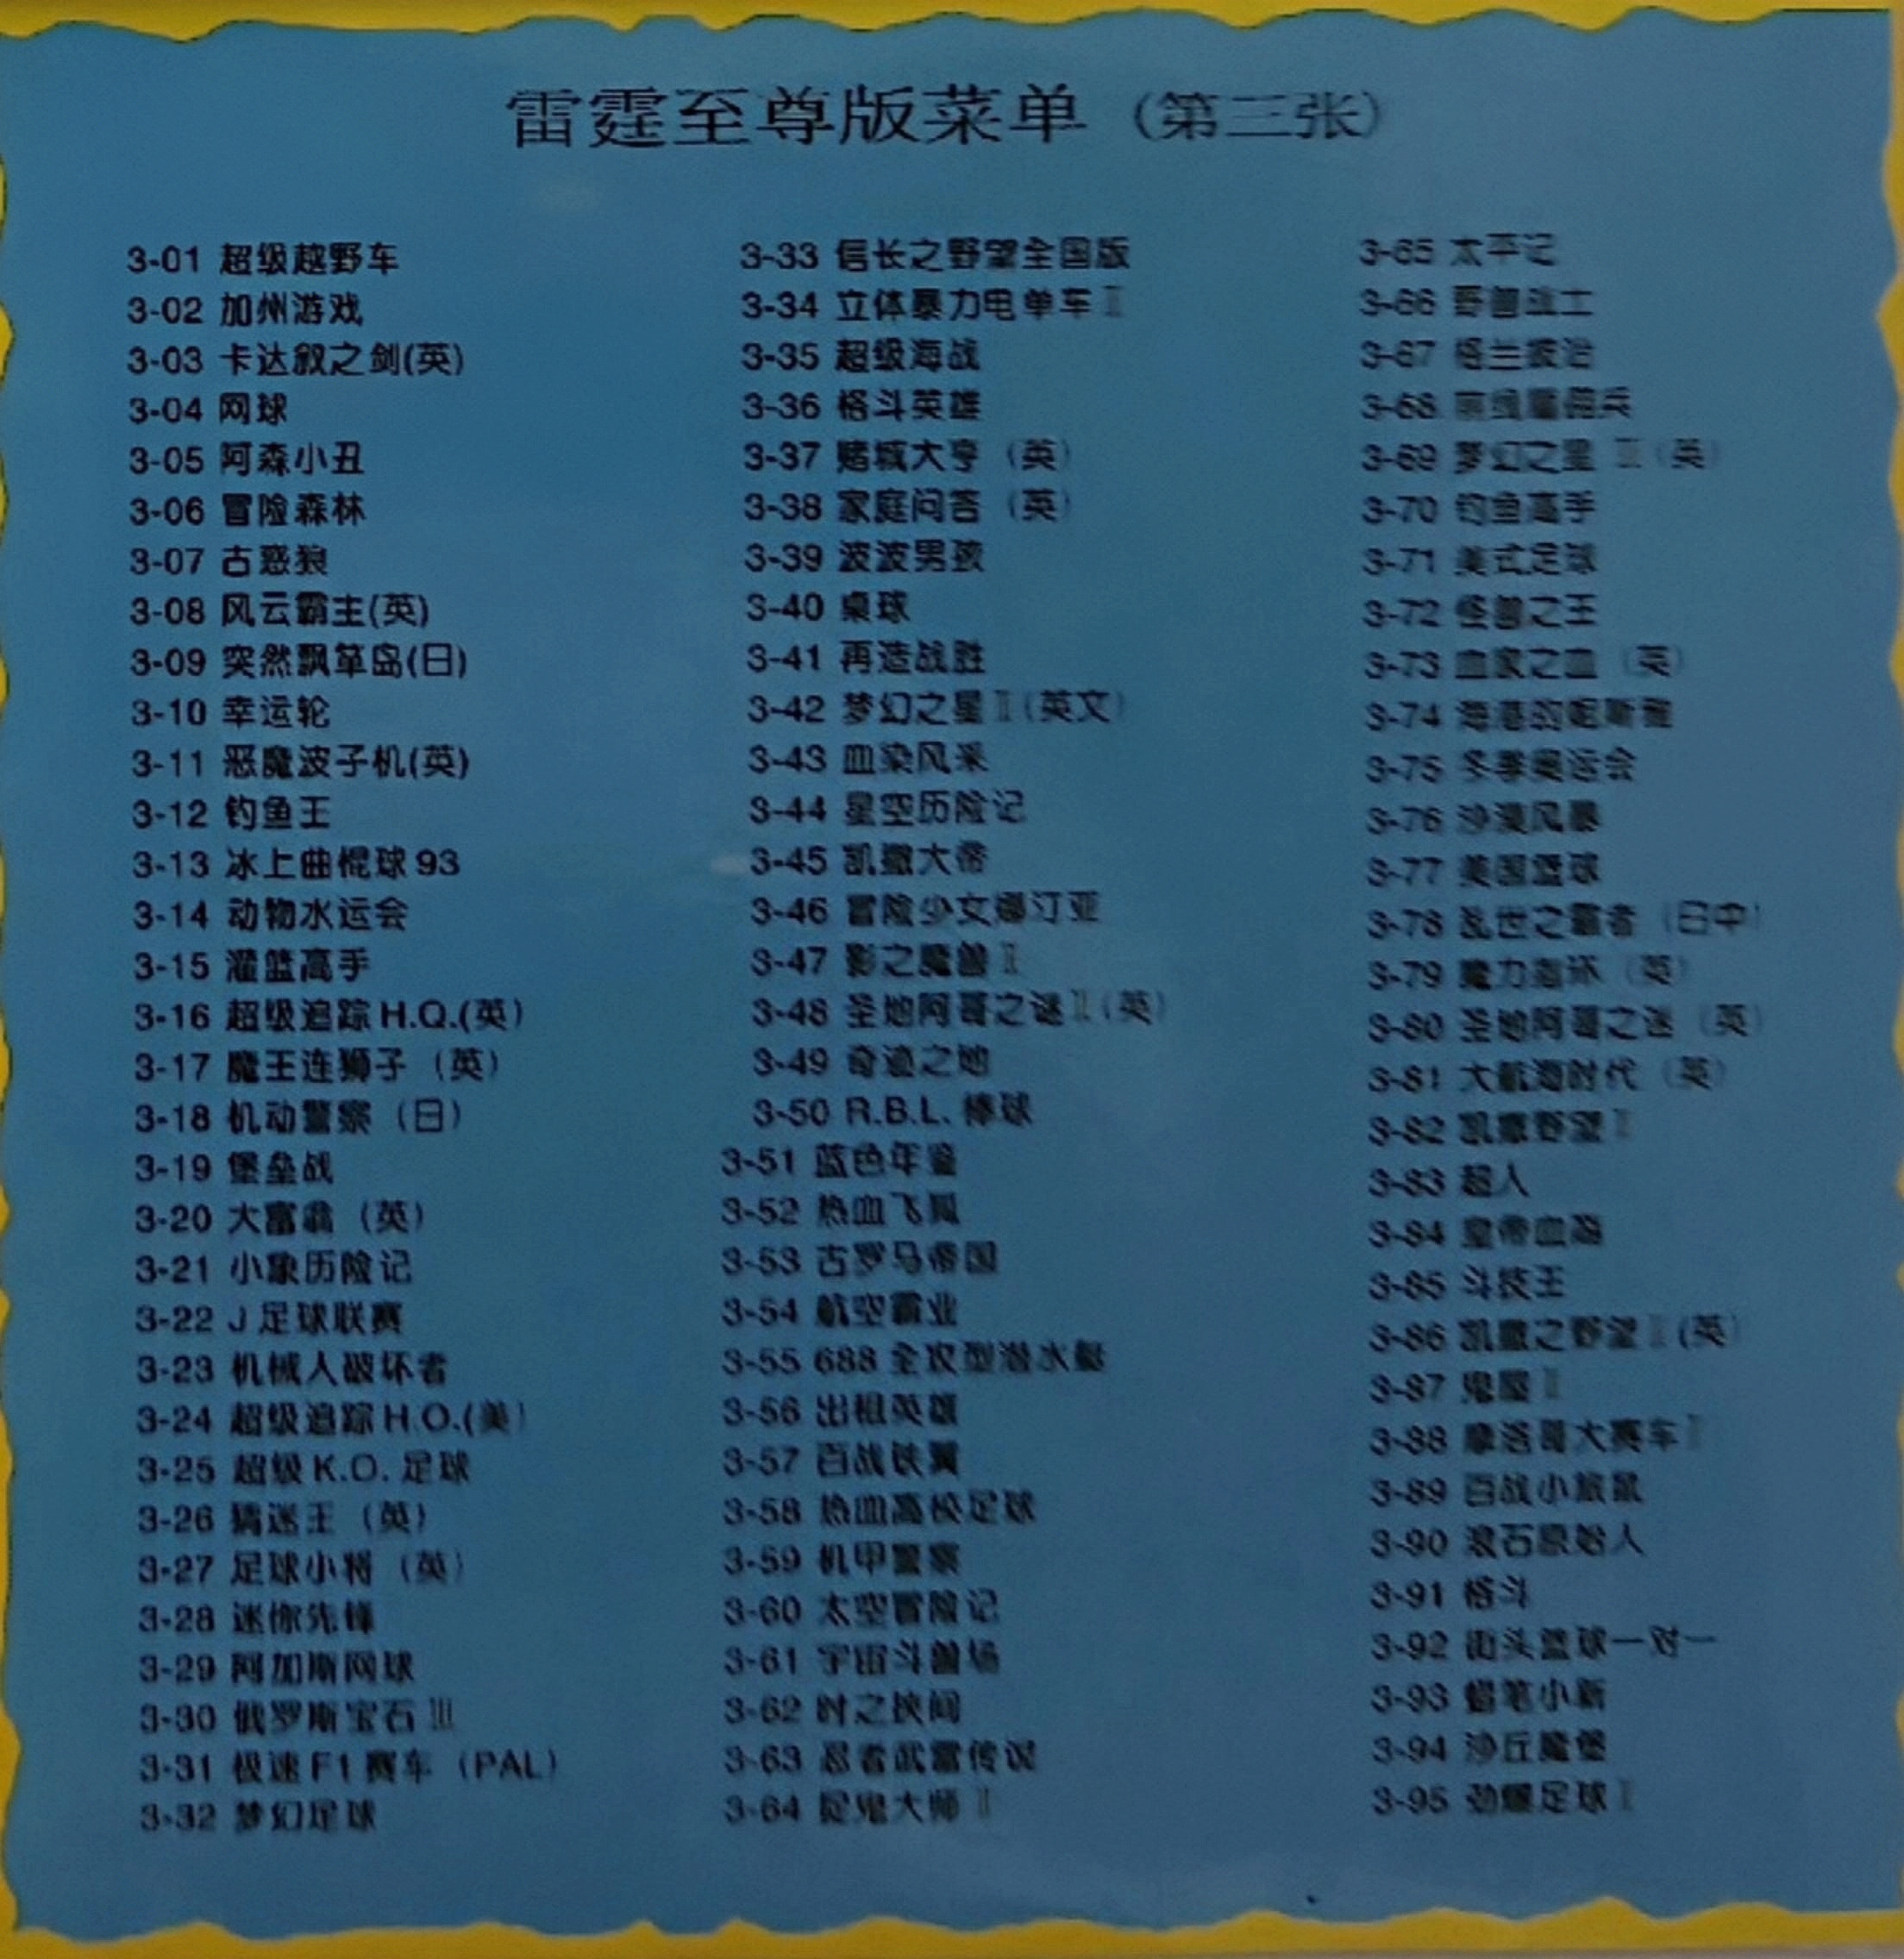 雷霆至尊版菜单（第三张）
3-01 超级越野车
3-02 加州游戏
3-03 卡达叙之剑(英)
3-04 网球
3-05 阿森小丑
3-06 冒险森林
3-07 古惑狼
3-08 风云霸主(英)
3-09 突然飘草岛(日)
3-10 幸运轮
3-11 恶魔波子机(英)
3-12 钓鱼王
3-13 冰上曲棍球93
3-14 动物水运会
3-15 灌篮高手
3-16 超级追踪H.Q.(英)
3-17 魔王连狮子（英）
3-18 机动警察（日）
3-19 堡垒战
3-20 大富翁（英）
3-21 小象历险记
3-22 J足球联赛
3-23 机械人破坏者
3-24 超级追踪H.O.(美)
3-25 超级K.O.足球
3-26 猜迷王（英）
3-27 足球小将（英）
3-28 迷你先锋
3-29 阿加斯网球
3-30 俄罗斯宝石III
3-31 极速F1赛车（PAL）
3-32 梦幻足球
3-33 信长之野望全国版
3-34 立体暴力电单车II
3-35 超级海战
3-36 格斗英雄
3-37 赌城大亨（英）
3-38 家庭问答（英）
3-39 波波男孩
3-40 桌球
3-41 再造战胜
3-42 梦幻之星II(英文）
3-43 血染风采
3-44 星空历险记
3-45 凯撒大帝
3-46 冒险少女娜汀亚
3-47 影之魔兽II
3-48 圣地阿哥之谜II(英）
3-49 奇迹之地
3-50 R.B.L.棒球
3-51 蓝色年鉴
3-52 热血飞凤
3-53 古罗马帝国
3-54 航空霸业
3-55 688全攻型潜水艇
3-56 出租英雄
3-57 百战铁翼
3-58 热血高校足球
3-59 机甲警察
3-60 太空冒险记
3-61 宇宙斗兽场
3-62 时之挟间
3-63 忍者武雷传说
3-64 捉鬼大师II
3-65 太平记
3-66 野兽战士
3-67 格兰披治
3-68 前线雇佣兵
3-69 梦幻之星 （英）
3-70 钓鱼高手
3-71 美式足球
3-72 怪兽之王
3-73 皿家之血（英）
3-74
3-75 冬季奥运会
3-76 沙漠风暴
3-77 美国篮球
3-78 乱世之霸者（日中）
3-79 魔力指环（英）
3-80 圣地阿哥之迷（英）
3-81 大航海时代（英）
3-82 凯撒野望II
3-83 超人
3-84 皇帝血
3-85 斗技王
3-86 凯撒之野望II(英）
3-87 鬼屋II
3-88 摩洛哥大赛车I
3-89 百战小旅鼠
3-90 滚石原始人
3-91 格斗
3-92 街头篮球一对一
3-93 蜡笔小新
3-94 沙丘魔堡
3-95 劲爆足球I